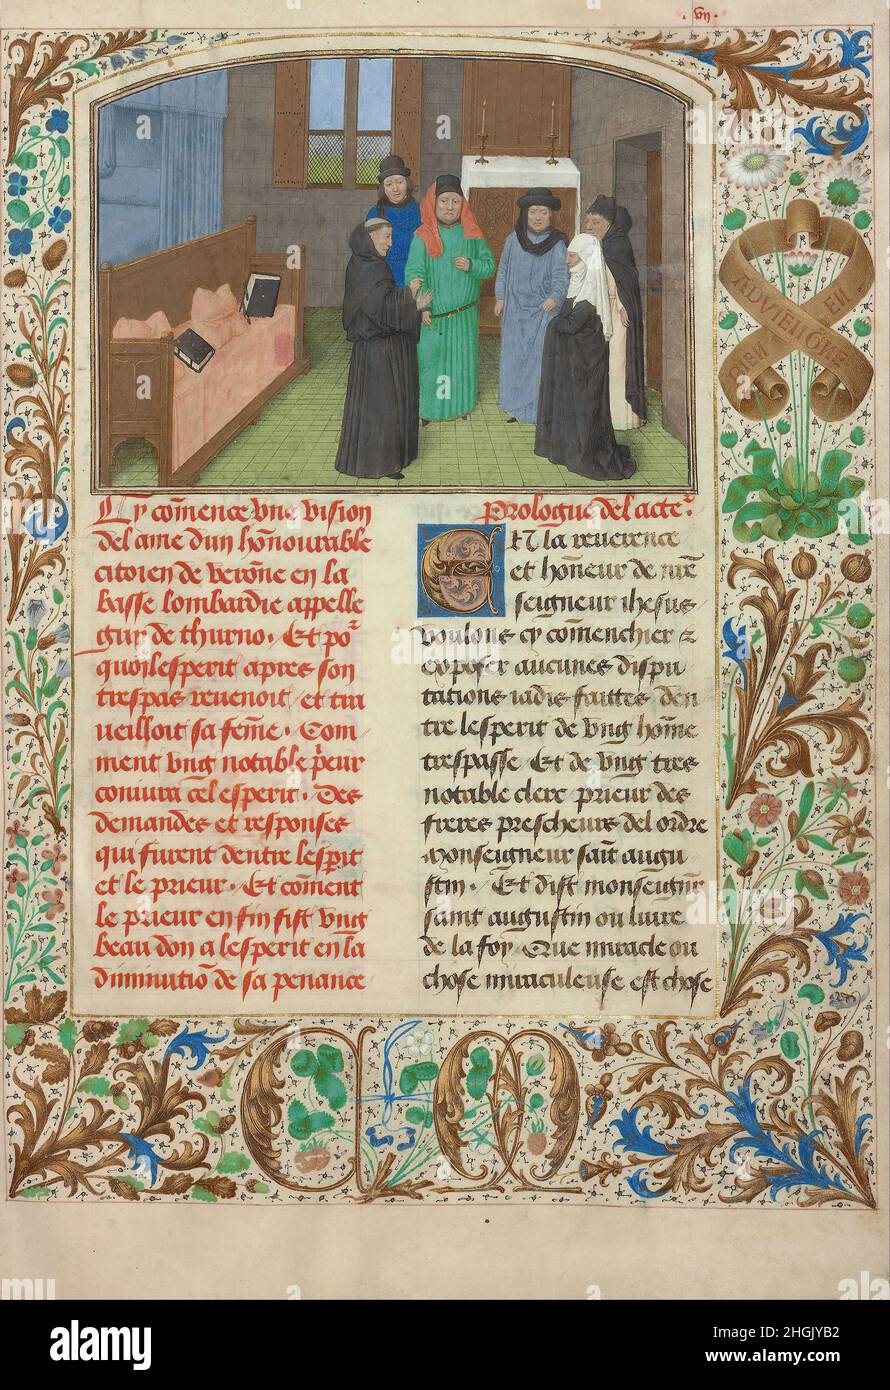 .vij.
Cy cõmence vne vision
del ame dun hõnourable
citoien de verõne en la
basse lombardie appelle
guy de thurno. Et poʳ
quoi lesperit apres son
trespas reuenoit et tra
ueilloit sa fẽme. Com
ment vng notable p̃eur
coniura cel esperit. Des
demandes et responses
qui furent dentre lesp̃it
et le prieur. Et cõment
le prieur en fin fist vng
beau don a lesperit en la
diminutiõ de sa penance
Prologue del acteʳ
ET la reuerence
et hõneur de nr̃e
seigneur ihesus
voulons cy cõmenchier &
exposer aucunes dispu
tations iadis faittes den
tre lesperit de vng hõme
trespasse Et de vng tres
notable clerc prieur des
freres prescheurs del ordre
monseigneur sait augu
stin. Et dist monseign̄r
saint augustin ou liure
de la foy Que miracle ou
chose miraculeuse est chose
ADVIENGNE
BIEN
EN
CM
alamy
a
alamy
Image ID: 2HGJYB2
www.alamy.com